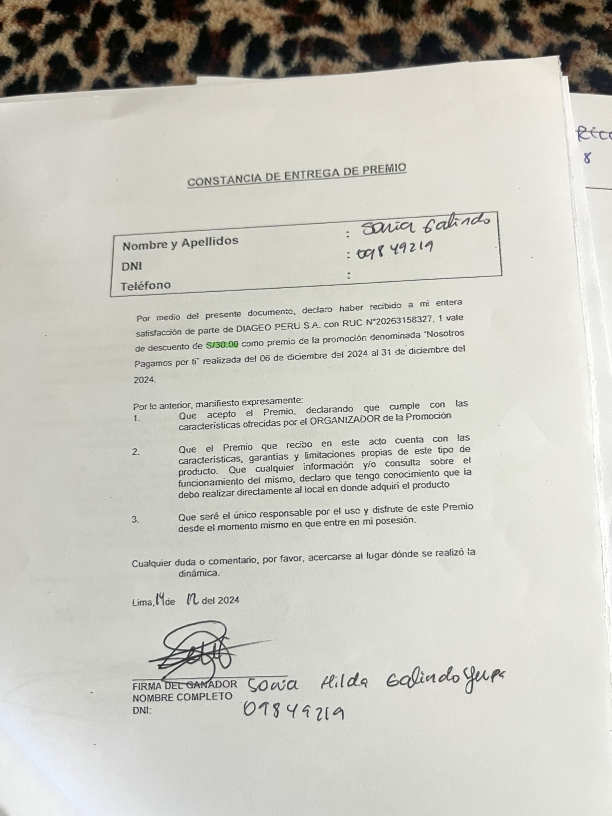 CONSTANCIA DE ENTREGA DE PREMIO
Nombre y Apellidos : Sonia Galindo
DNI : 09849219
Teléfono :
Por medio del presente documento, declaro haber recibido a mi entera
satisfacción de parte de DIAGEO PERU S.A. con RUC N°20263158327, 1 vale
de descuento de S/30.00 como premio de la promoción denominada "Nosotros
Pagamos por ti" realizada del 06 de diciembre del 2024 al 31 de diciembre del
2024.
Por lo anterior, manifiesto expresamente:
1. Que acepto el Premio, declarando que cumple con las
características ofrecidas por el ORGANIZADOR de la Promoción
2. Que el Premio que recibo en este acto cuenta con las
características, garantías y limitaciones propias de este tipo de
producto. Que cualquier información y/o consulta sobre el
funcionamiento del mismo, declaro que tengo conocimiento que la
debo realizar directamente al local en donde adquirí el producto
3. Que seré el único responsable por el uso y disfrute de este Premio
desde el momento mismo en que entre en mi posesión.
Cualquier duda o comentario, por favor, acercarse al lugar dónde se realizó la
dinámica.
Lima, 14 de 12 del 2024
FIRMA DEL GANADOR
NOMBRE COMPLETO Sonia Hilda Galindo
DNI: 09849219
8